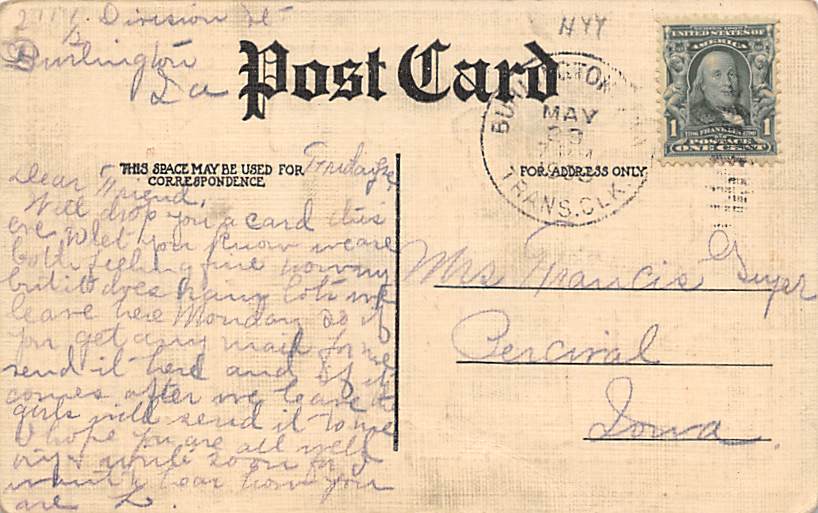 Division St
Burlington
Ia
Post Card
HYY
BURLINGTON
MAY
23
TRANS. CLK.
UNITED STATES OF
AMERICA
1 FRANKLIN 1
POSTAGE
ONE CENT
THIS SPACE MAY BE USED FOR
CORRESPONDENCE
FOR ADDRESS ONLY
Friday
Dear Friend,
Will drop you a card this
eve & let you know we are
both feeling fine now
but it does rain lots we
leave here Monday so if
you get any mail for me
send it here and if it
comes after we leave the
girls will send it to me
I hope you are all well
write soon for I
want to hear how you
are L.
Mrs Francis Guyer
Percival
Iowa